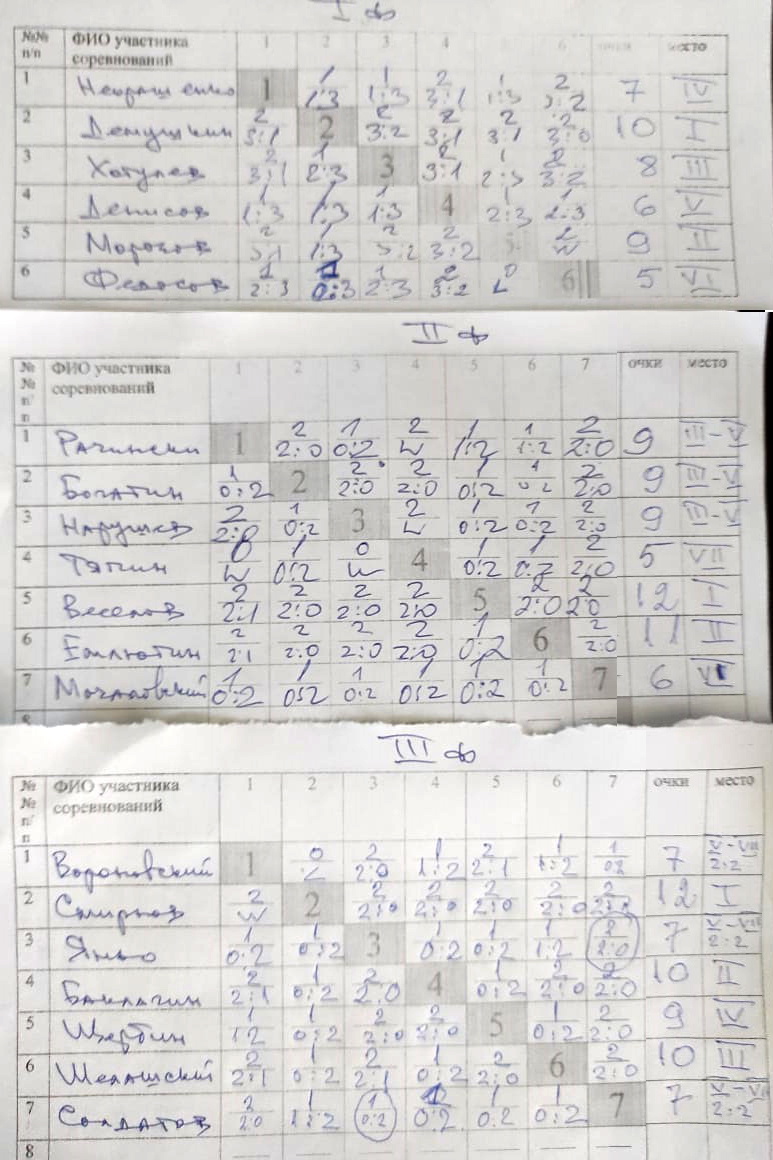 I ф
№№ п/п ФИО участника соревнований 1 2 3 4 5 6 очки место
1 Некрашенко 1 1 1:3 1 1:3 2 3:1 1 1:3 2 3:2 7 IV
2 Демушкин 2 3:1 2 2 3:2 2 3:1 2 3:1 2 3:0 10 I
3 Хотулев 2 3:1 1 2:3 3 2 3:1 1 2:3 2 3:2 8 III
4 Денисов 1 1:3 1 1:3 1 1:3 4 1 2:3 1 2:3 6 V
5 Морозов 2 3:1 1 1:3 2 3:2 2 3:2 5 2 W 9 II
6 Федосов 1 2:3 1 0:3 1 2:3 2 3:2 0 L 6 5 VI
II ф
№ № п/п ФИО участника соревнований 1 2 3 4 5 6 7 очки место
1 Рачински 1 2 2:0 1 0:2 2 W 1 1:2 1 1:2 2 2:0 9 III-V
2 Богатин 1 0:2 2 2 2:0 2 2:0 1 0:2 1 0:2 2 2:0 9 III-V
3 Нарушев 2 2:0 1 0:2 3 2 W 1 0:2 1 0:2 2 2:0 9 III-V
4 Тяпин 0 W 1 0:2 0 W 4 1 0:2 1 0:2 2 2:0 5 VII
5 Веселов 2 2:1 2 2:0 2 2:0 2 2:0 5 2 2:0 2 2:0 12 I
6 Емлютин 2 2:1 2 2:0 2 2:0 2 2:0 1 0:2 6 2 2:0 11 II
7 Мочаловский 1 0:2 1 0:2 1 0:2 1 0:2 1 0:2 1 0:2 7 6 VI
8
III ф
№ № п/п ФИО участника соревнований 1 2 3 4 5 6 7 очки место
1 Вороновский 1 0 L 2 2:0 1 1:2 2 2:1 1 1:2 1 0:2 7 V-VII 2:2
2 Смирнов 2 W 2 2 2:0 2 2:0 2 2:0 2 2:0 2 2:1 12 I
3 Янко 1 0:2 1 0:2 3 1 0:2 1 0:2 1 1:2 2 2:0 7 V-VII 2:2
4 Баклагин 2 2:1 1 0:2 2 2:0 4 1 0:2 2 2:0 2 2:0 10 II
5 Щербин 1 1:2 1 0:2 2 2:0 2 2:0 5 1 0:2 2 2:0 9 IV
6 Шелашский 2 2:1 1 0:2 2 2:1 1 0:2 2 2:0 6 2 2:0 10 III
7 Солдатов 2 2:0 1 1:2 1 0:2 1 0:2 1 0:2 1 0:2 7 7 V-VII 2:2
8